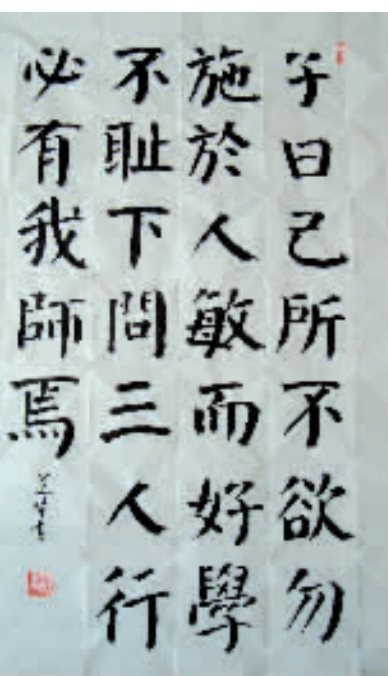 子曰己所不欲勿
施於人敏而好學
不耻下問三人行
必有我師焉